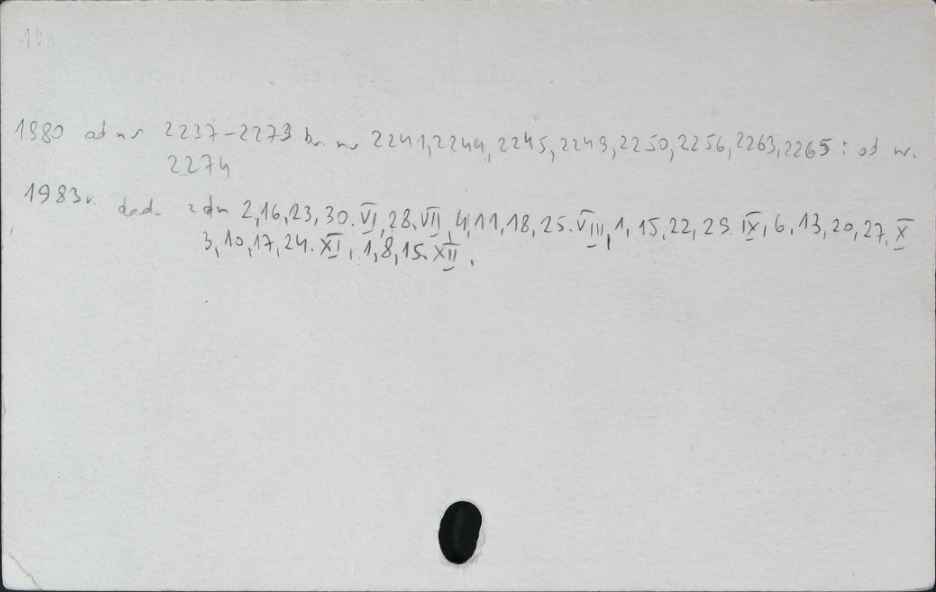 1980 od nr 2237-2273 br. nr 2241,2244,2245,2249,2250,2256,2263,2265 : od nr.
2274
1983r. dod. z dn 2,16,23,30.VI,28.VII,4,11,18,25.VIII,1,15,22,29.IX,6,13,20,27.X
3,10,17,24.XI,1,8,15.XII,